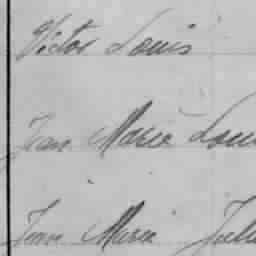 Victor Louis
Jean Marie Loui
Jean Marie Juli